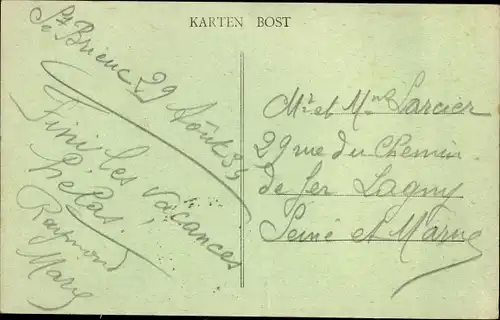 KARTEN BOST
St Brieuc 29 Août 35
Fini les vacances
hélas.
Raymond
Marie
Mr et Mme Larcier
29 rue du Chemin
de fer Lagny
Seine et Marne